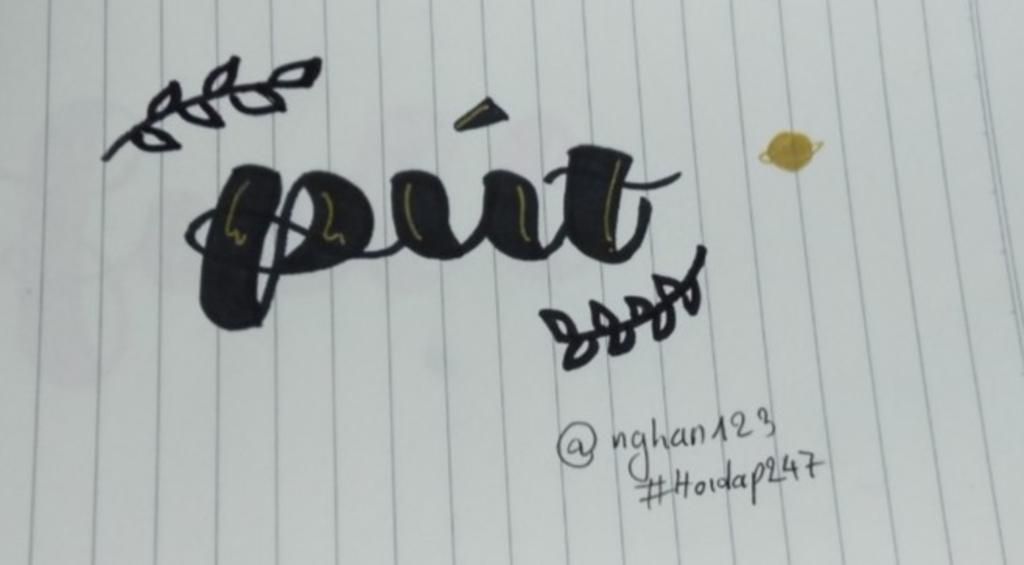 pút
@nghan123
#Hoidap247